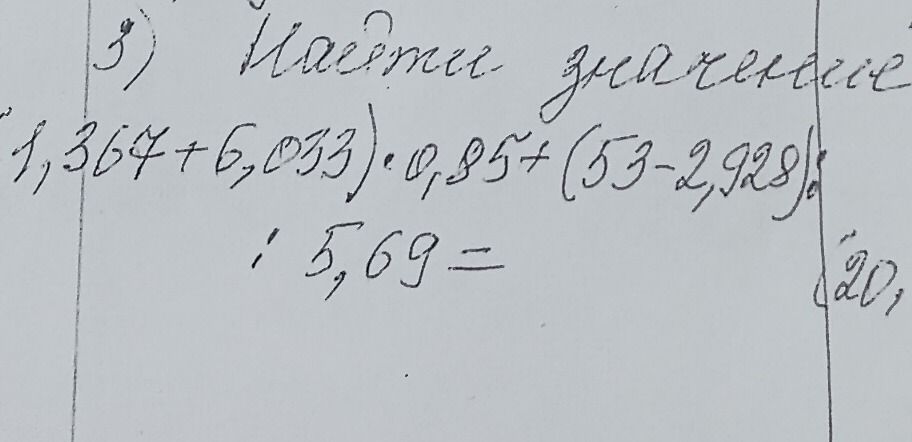 3) Найти значение
1,367+6,033)·0,85+(53-2,928):
: 5,69=
(20,